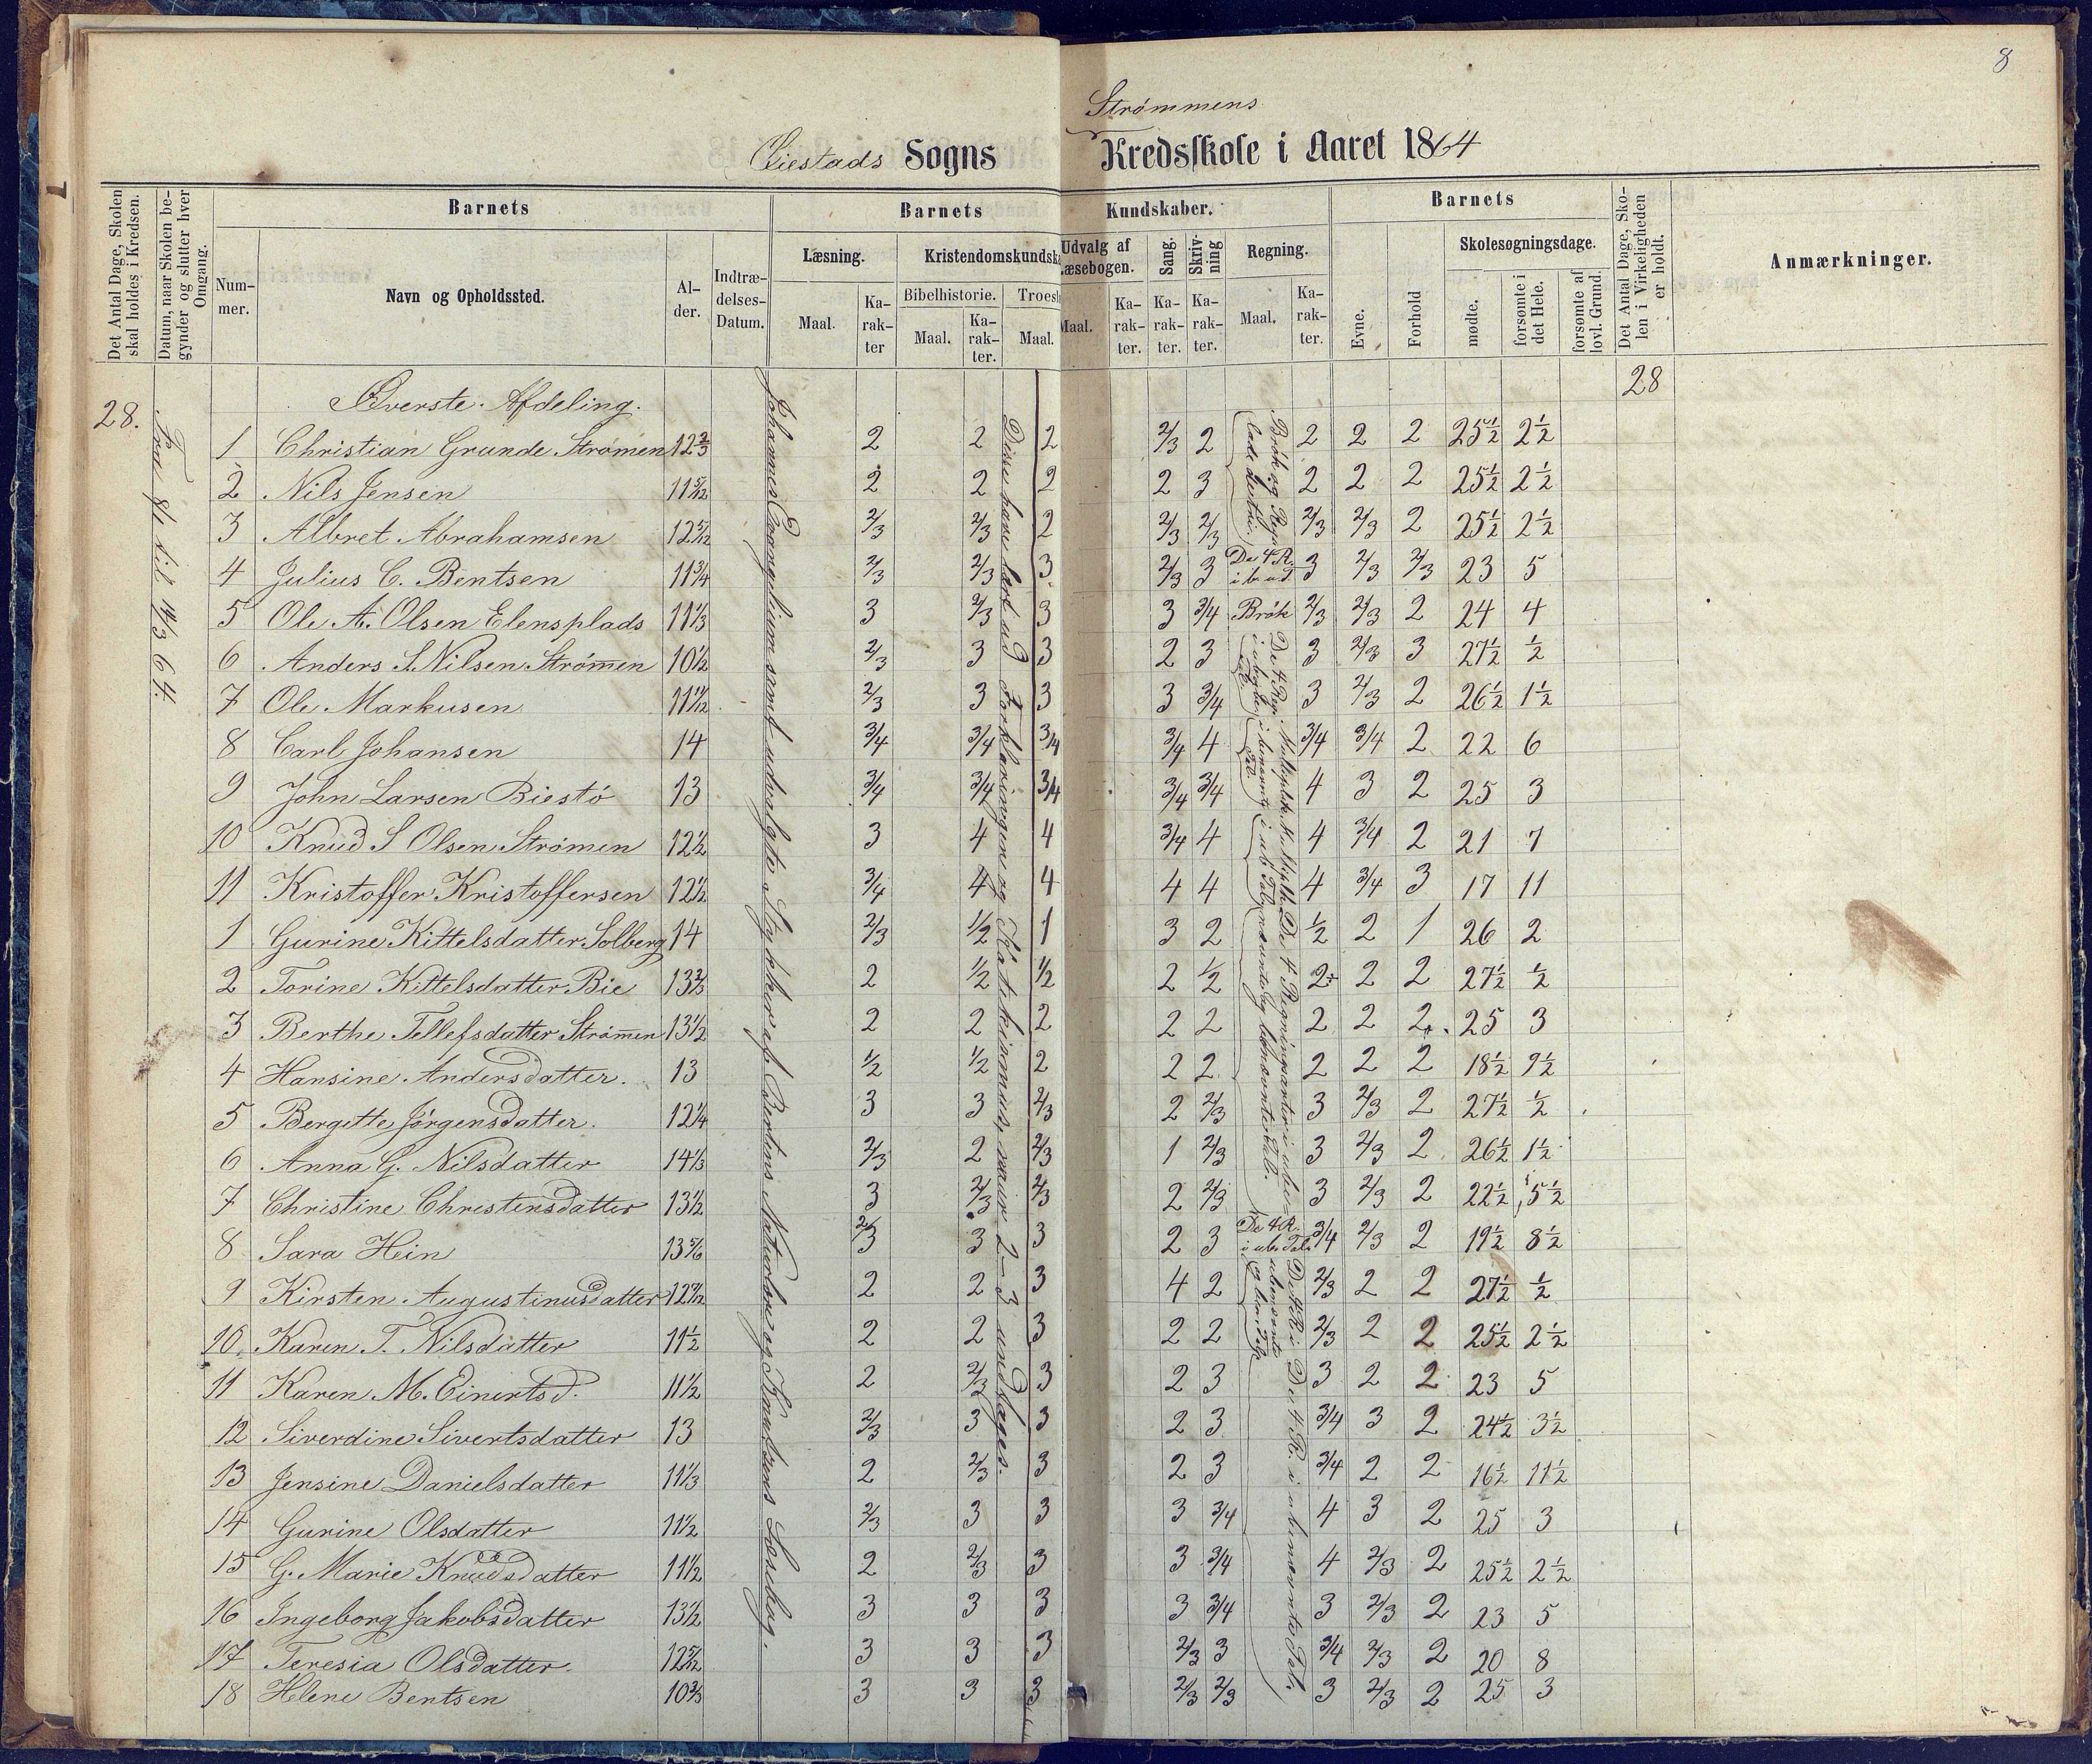 8
Strømmens
Øiestads Sogns Kredsskole i Aaret 1864
Det Antal Dage, Skolen skal holdes i Kredsen.
Datum, naar Skolen begynder og slutter hver Omgang.
Barnets
Nummer.
Navn og Opholdssted.
Alder.
Indtrædelses-Datum.
Barnets Kundskaber.
Læsning.
Maal.
Karakter
Kristendomskundska
Bibelhistorie.
Maal.
Karakter.
Troesl
Maal.
Udvalg af Læsebogen.
Maal.
Karakter.
Sang.
Karakter.
Skrivning
Karakter.
Regning.
Maal.
Karakter.
Barnets
Evne.
Forhold
Skolesøgningsdage.
mødte.
forsømte i det Hele.
forsømte af lovl. Grund.
Det Antal Dage, Skolen i Virkeligheden er holdt.
Anmærkninger.
28.
Fra 8/1 til 14/3 64.
Øverste Afdeling.
28
1 Christian Grunde Strømen 12 2/3 2 2 2 2/3 2 2 2 2 25½ 2½
2 Nils Jensen 11 5/12 2 2 2 2 3 2 2 2 25½ 2½
3 Albret Abrahamsen 12 5/12 2/3 2/3 2 2/3 2/3 2/3 2/3 2 25½ 2½
4 Julius C. Bentsen 11 3/4 2/3 2/3 3 2/3 3 3 2/3 2/3 23 5
5 Ole A. Olsen Elensplads 11 1/3 3 2/3 3 3 3/4 Brøk 2/3 2/3 2 24 4
6 Anders S. Nilsen Strømen 10½ 2/3 3 3 2 3 3 2/3 3 27½ ½
7 Ole Markusen 11 11/12 2/3 3 3 3 3/4 3 2/3 2 26½ 1½
8 Carl Johansen 14 3/4 3/4 3/4 3/4 4 3/4 3/4 2 22 6
9 John Larsen Biestø 13 3/4 3/4 3/4 3/4 3/4 4 3 2 25 3
10 Knud S Olsen Strømen 12½ 3 4 4 3/4 4 4 3/4 2 21 7
11 Kristoffer Kristoffersen 12½ 3/4 4 4 4 4 4 3/4 3 17 11
1 Gurine Kittelsdatter Solberg 14 2/3 1/2 1 3 2 1/2 2 1 26 2
2 Torine Kittelsdatter Bie 13 2/3 2 1/2 1/2 2 1/2 2 2 2 27½ ½
3 Berthe Tellefsdatter Strømen 13½ 2 2 2 2 2 2 2 2 25 3
4 Hansine Andersdatter. 13 1/2 1/2 2 2 2 2 2 2 18½ 9½
5 Bergitte Jørgensdatter. 12¼ 3 3 2/3 2 2/3 3 2/3 2 27½ ½
6 Anna G. Nilsdatter 14 1/3 2/3 2 2/3 1 2/3 3 2/3 2 26½ 1½
7 Christine Christensdatter 13½ 3 2/3 2/3 2 2/3 3 2/3 2 22½ 5½
8 Sara Hein 13 5/6 2/3 3 3 2 3 3/4 2/3 2 19½ 8½
9 Kirsten Augustinusdatter 12 9/12 2 2 3 4 2 2/3 2 2 27½ ½
10 Karen T. Nilsdatter 11½ 2 2 3 2 2 2/3 2 2 25½ 2½
11 Karen M. Einertsd. 11½ 2 2/3 3 2 3 3 2 2 23 5
12 Siverdine Sivertsdatter 13 2/3 3 3 2 3 3/4 3 2 24½ 3½
13 Jensine Danielsdatter 11 1/3 2 2/3 3 2 3 3/4 2 2 16½ 11½
14 Gurine Olsdatter 11½ 2/3 3 3 3 3/4 4 3 2 25 3
15 G. Marie Knudsdatter 11½ 2 2/3 3 3 3/4 4 2/3 2 25½ 2½
16 Ingeborg Jakobsdatter 13½ 3 3 3 3 3/4 3 2/3 2 23 5
17 Teresia Olsdatter. 12 5/12 3 3 3 2/3 3 3/4 2/3 2 20 8
18 Helene Bentsen 10 2/3 3 3 3 2/3 2/3 3 2/3 2 25 3
Johannes Evangelium samt udvalgte Stykker af Naturlære og Læsebog.
Disse have lært ud Forklaringen og Katekismus, naar 2-3 undtages.
De 4 Regningsarter i
De 4 R. i ubenævnte Tal.